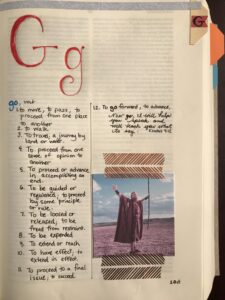 Gg
G
go, verb
1. to move, to pass, to
proceed from one place
to another
2. to walk
3. To travel, a journey by
land or water.
4. To proceed from one
state of opinion to
another
5. To proceed or advance
in accomplishing an
end.
6. To be guided or
regulated; to proceed
by some principle
or rule.
7. To be loosed or
released; to be
freed from restraint.
8. To be expended
9. To extend or reach
10. To have effect; to
extend in effect.
11. To proceed to a final
issue; to succeed
12. To go forward, to advance.
Now go, I will help
you speak and
will teach you what
to say. Exodus 4:12